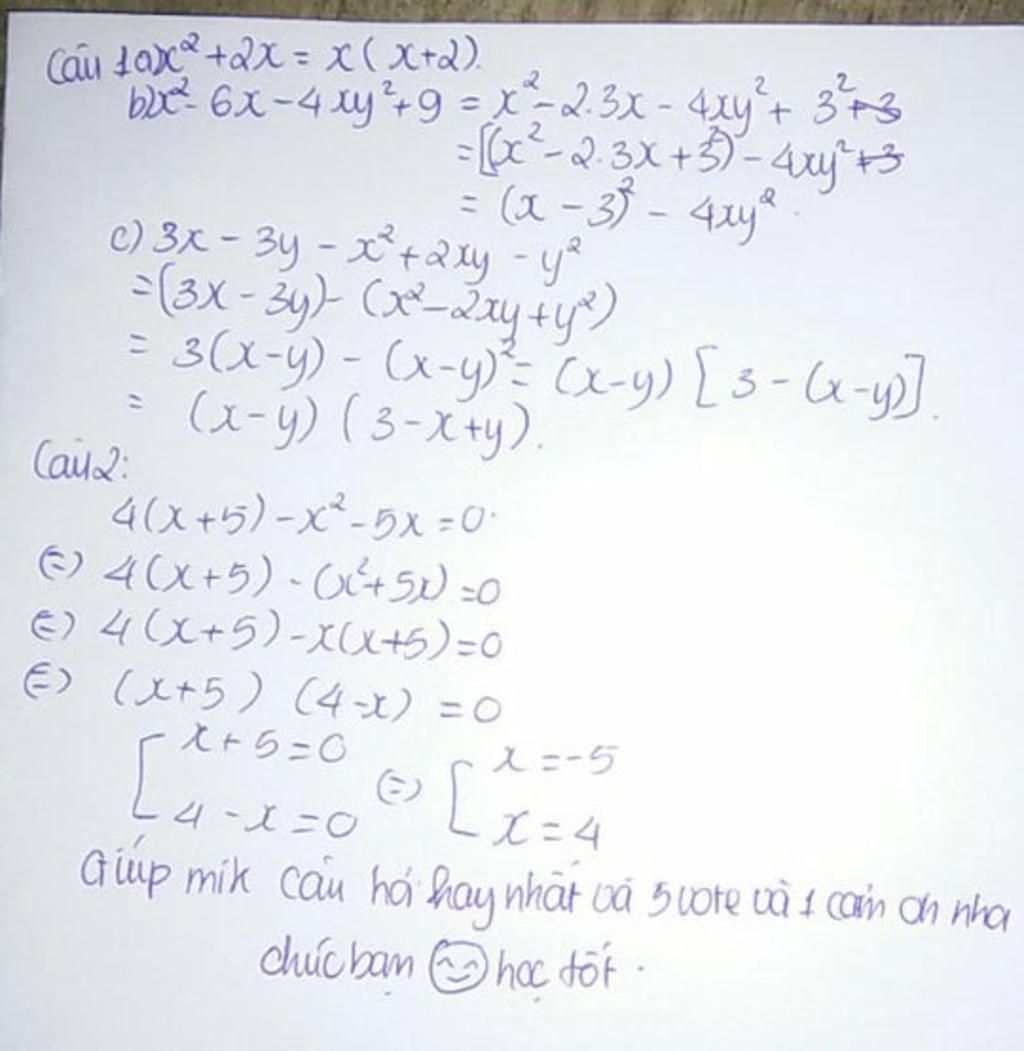 Câu 1a x² + 2x = x(x+2).
b) x² - 6x - 4xy² + 9 = x² - 2.3x - 4xy² + 3² + 3
= [(x² - 2.3x + 3²) - 4xy² + 3
= (x - 3)² - 4xy².
c) 3x - 3y - x² + 2xy - y²
= (3x - 3y) - (x² - 2xy + y²)
= 3(x-y) - (x-y)² = (x-y) [3 - (x-y)].
= (x-y) (3 - x + y).
Câu 2:
4(x+5) - x² - 5x = 0.
(=) 4(x+5) - (x² + 5x) = 0
(=) 4(x+5) - x(x+5) = 0
(=) (x+5) (4-x) = 0
[ x + 5 = 0 (=) [ x = -5
4 - x = 0 x = 4
Giúp mik câu hỏi hay nhất và 5 vote và 1 cảm ơn nha
chúc bạn học tốt.